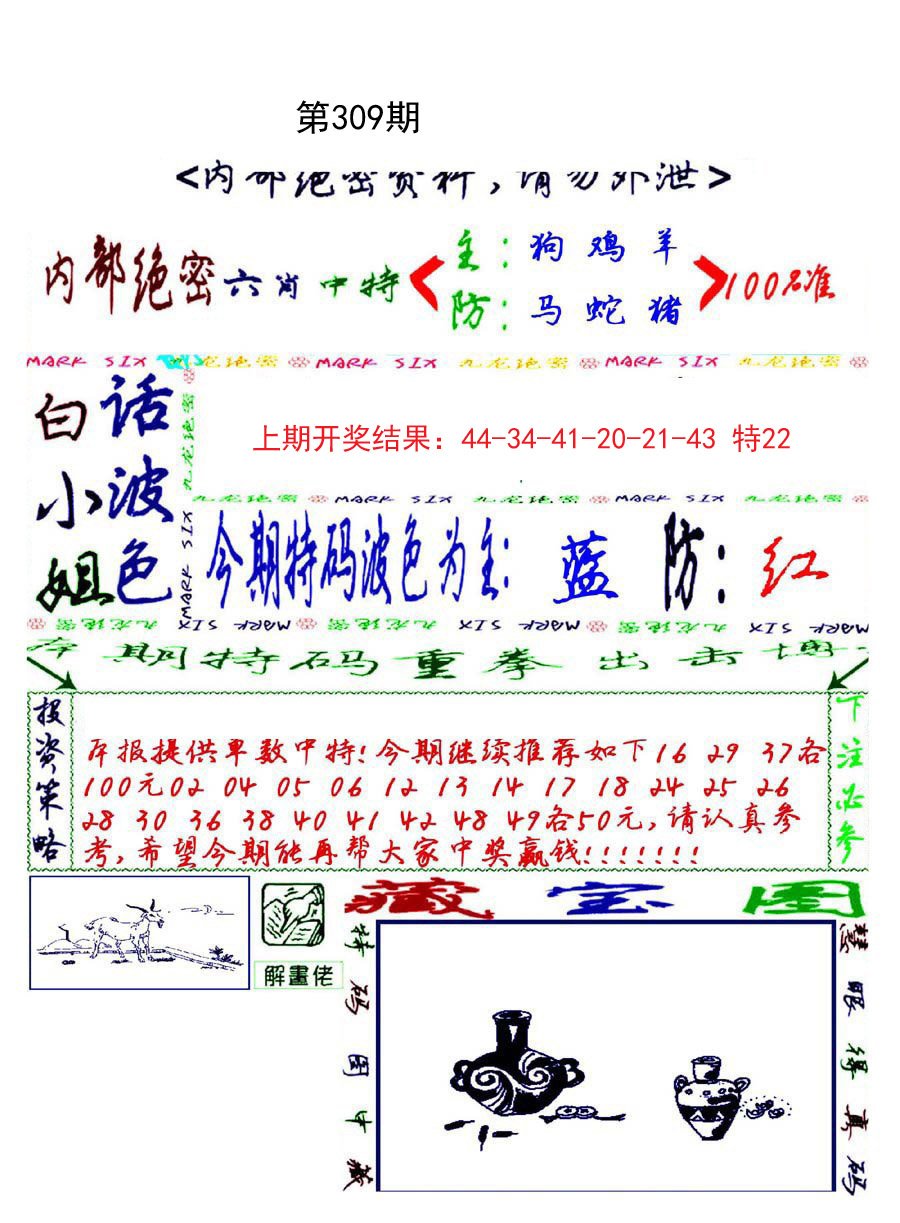 第309期
<内部绝密资料,请勿外泄>
内部绝密六肖中特
主:狗鸡羊
防:马蛇猪
100%准
MARK SIX 九龙绝密 MARK SIX 九龙绝密 MARK SIX 九龙绝密
白话
小波
姐色
九龙绝密
MARK SIX
上期开奖结果:44-34-41-20-21-43 特22
九龙绝密 MARK SIX 九龙绝密 MARK SIX 九龙绝密
今期特码波色为主:蓝 防:红
九龙绝密 MARK SIX 九龙绝密 MARK SIX 九龙绝密 MARK SIX
本期特码重拳出击博
投资策略
本报提供单数中特!今期继续推荐如下16 29 37各
100元02 04 05 06 12 13 14 17 18 24 25 26
28 30 36 38 40 41 42 48 49各50元,请认真参
考,希望今期能再帮大家中奖赢钱!!!!!!!
下注必参
解畫佬
藏宝图
特码图中藏
慧眼得真码